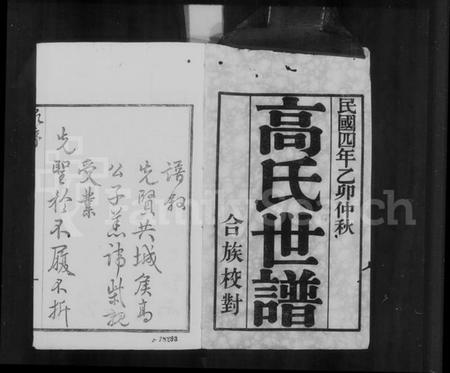 民國四年乙卯仲秋
高氏世譜
合族校對
譜敘
先賢共城侯高
公子羔諱柴祀
受業
先聖於不履不折
FamilySearch